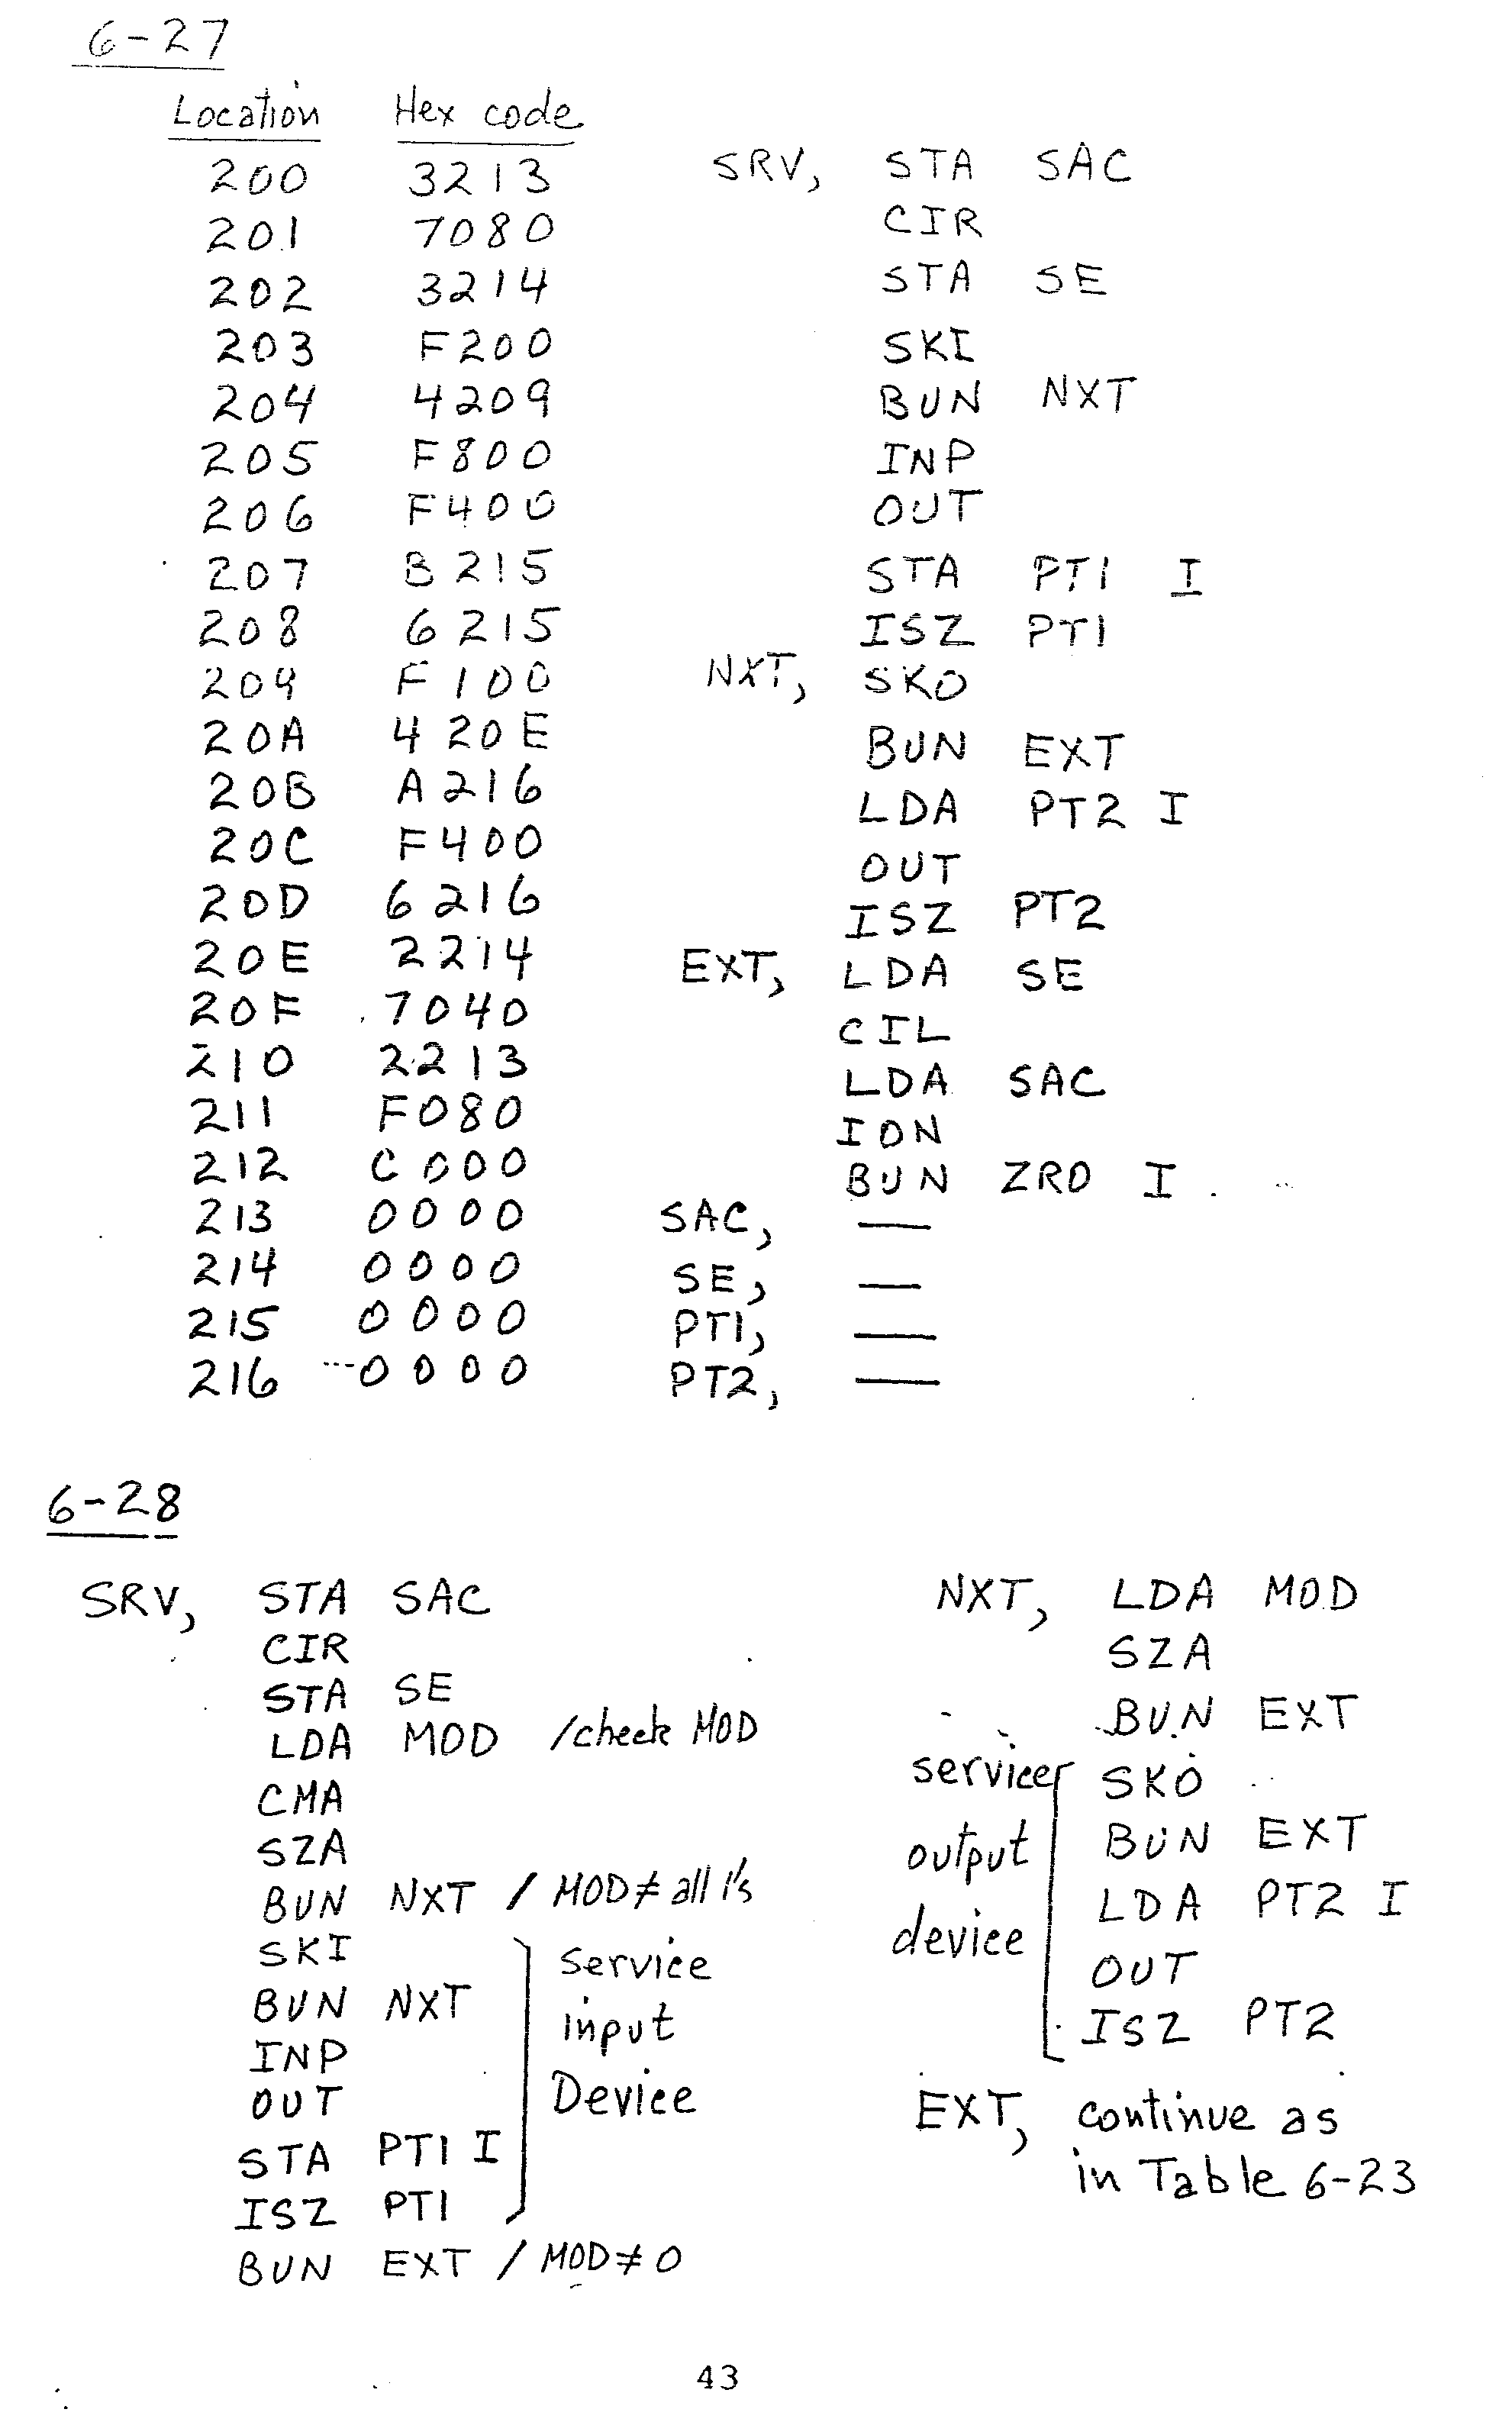 6-27
Location Hex code
200 3213 SRV, STA SAC
201 7080 CIR
202 3214 STA SE
203 F200 SKI
204 4209 BUN NXT
205 F800 INP
206 F400 OUT
207 B215 STA PT1 I
208 6215 ISZ PT1
209 F100 NXT, SKO
20A 420E BUN EXT
20B A216 LDA PT2 I
20C F400 OUT
20D 6216 ISZ PT2
20E 2214 EXT, LDA SE
20F 7040 CIL
210 2213 LDA SAC
211 F080 ION
212 C000 BUN ZRO I
213 0000 SAC, —
214 0000 SE, —
215 0000 PT1, —
216 0000 PT2, —
6-28
SRV, STA SAC
CIR
STA SE
LDA MOD /check MOD
CMA
SZA
BUN NXT / MOD≠ all 1's
SKI
BUN NXT
INP
OUT
STA PT1 I
ISZ PT1
service
input
Device
BUN EXT / MOD≠0
NXT, LDA MOD
SZA
BUN EXT
SKO
BUN EXT
LDA PT2 I
OUT
ISZ PT2
service
output
device
EXT, continue as
in Table 6-23
43